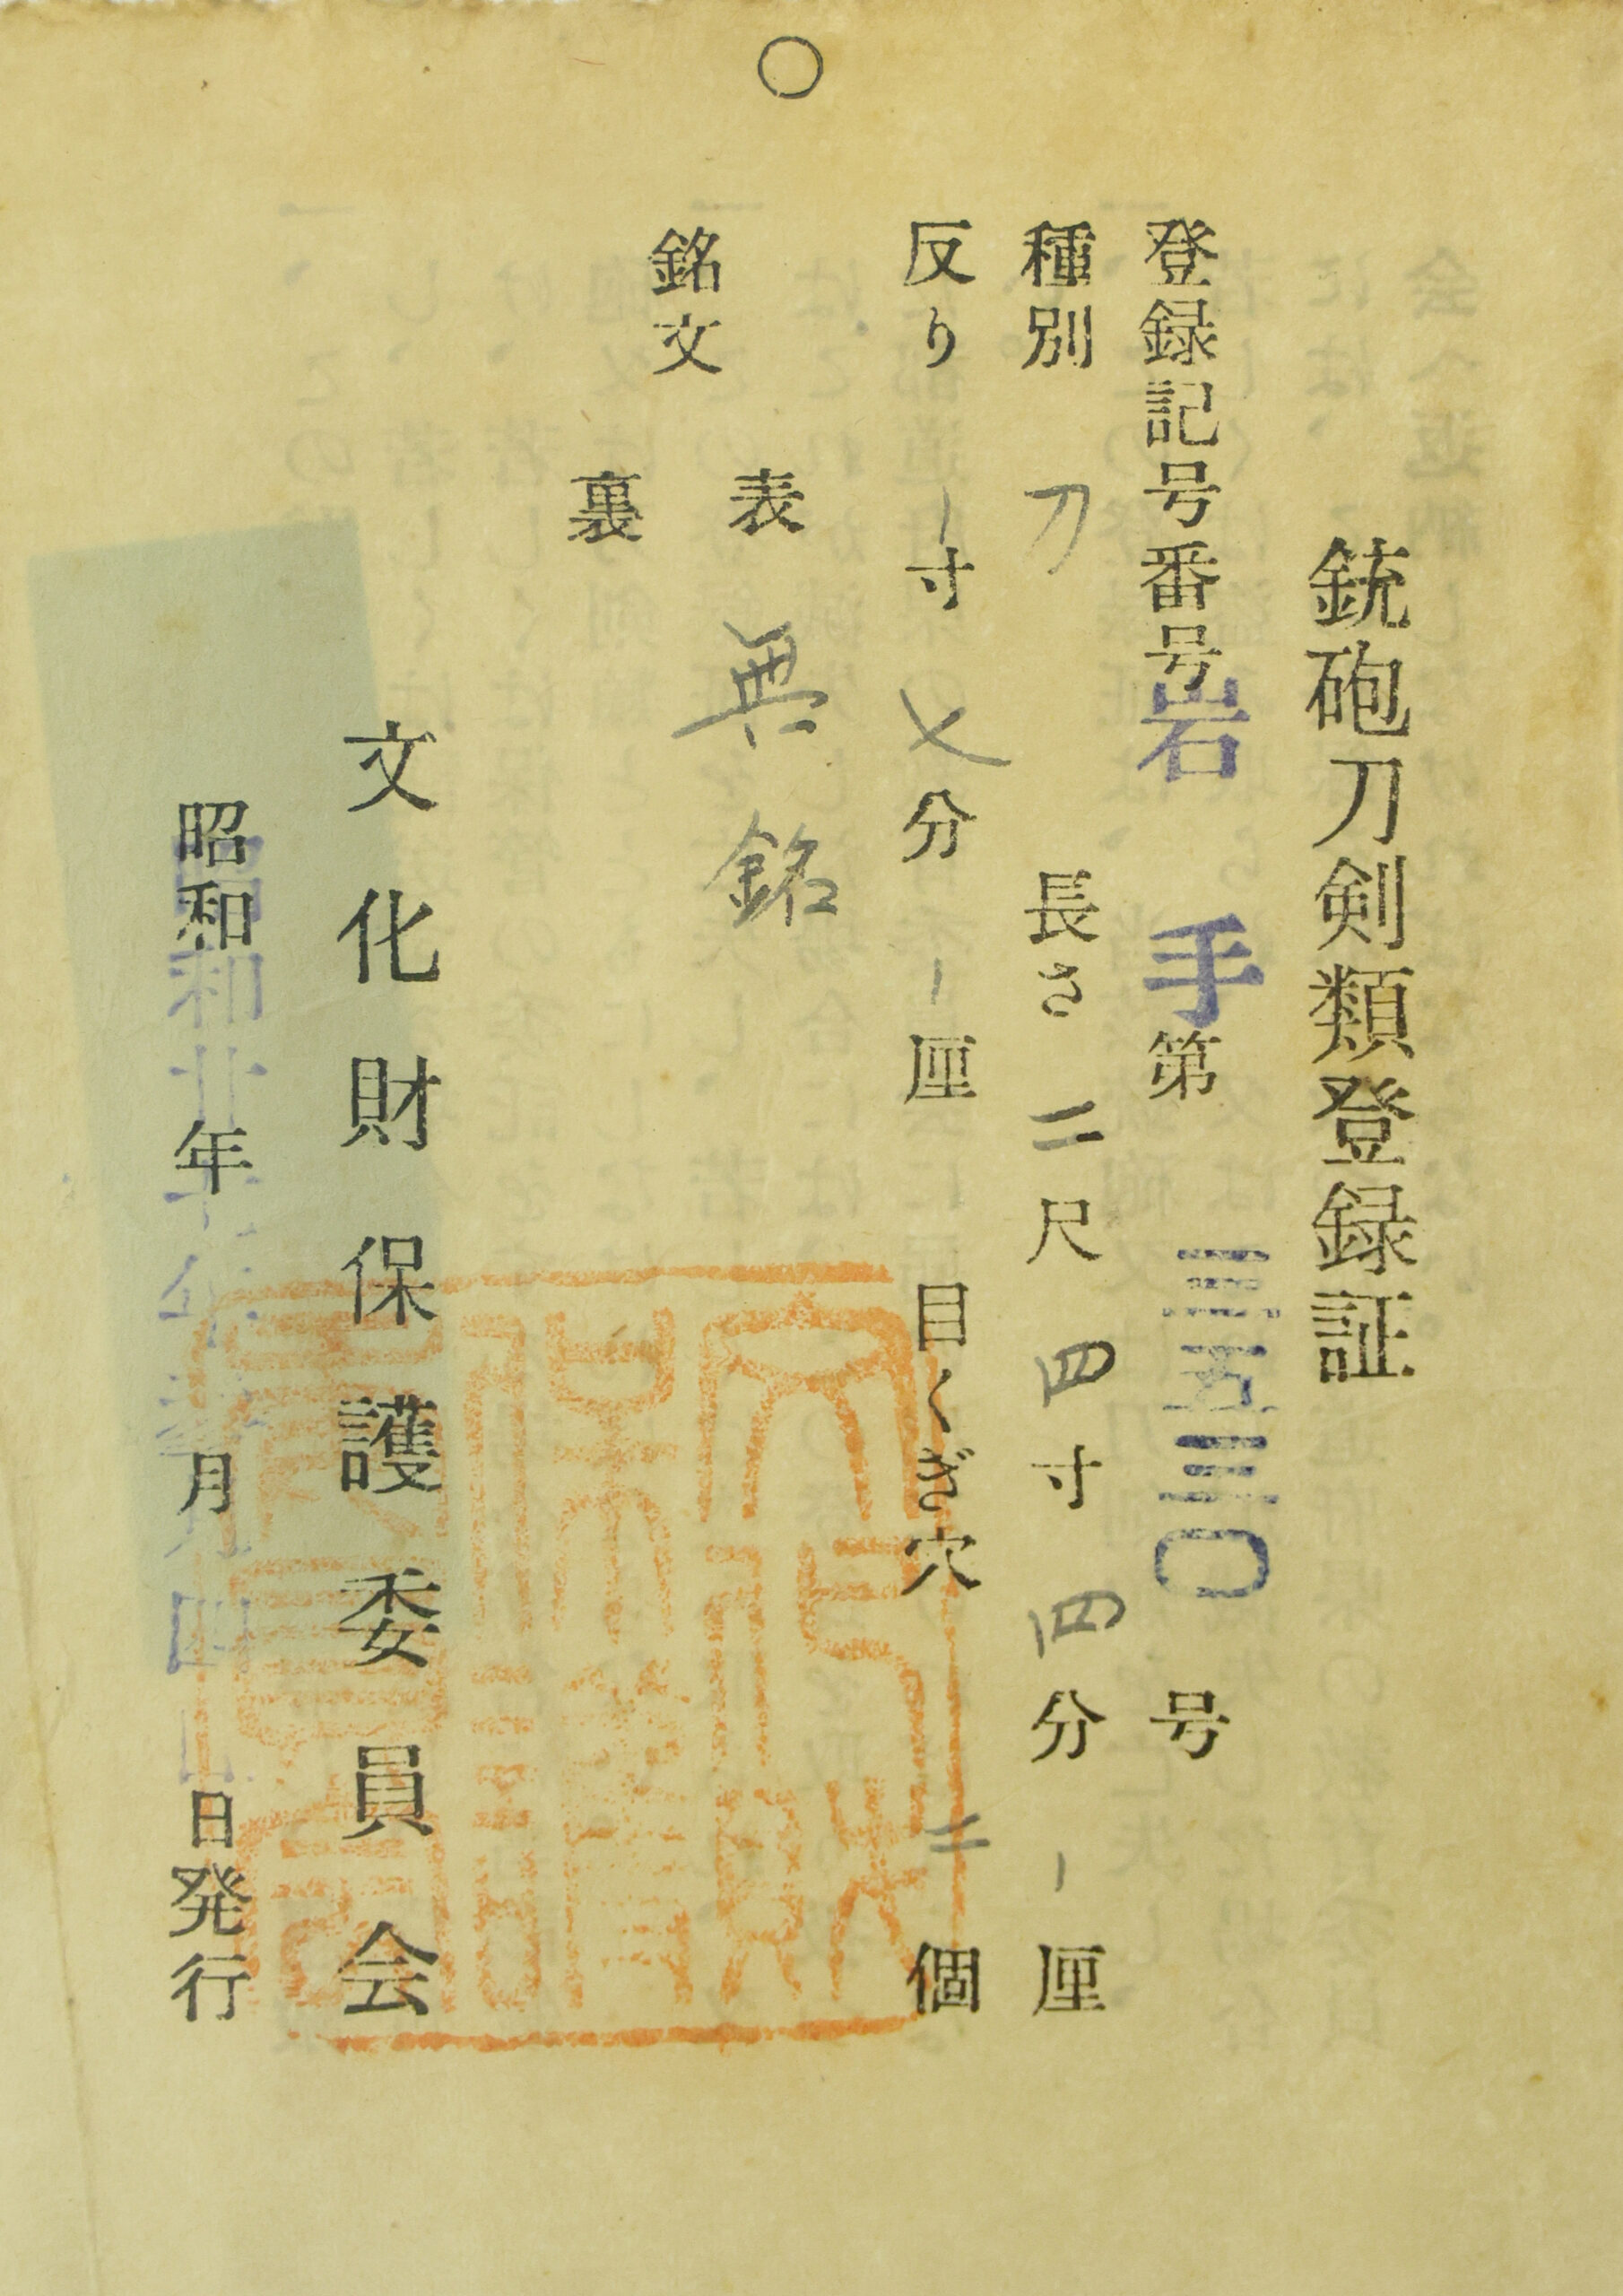 銃砲刀剣類登録証
登録記号番号 岩手 第 三五三〇 号
種別 刀 長さ 二尺四寸四分ー厘
反り ー寸七分ー厘 目くぎ穴 二個
銘文 表 無銘
裏
文化財保護委員会
昭和 年 月 日発行